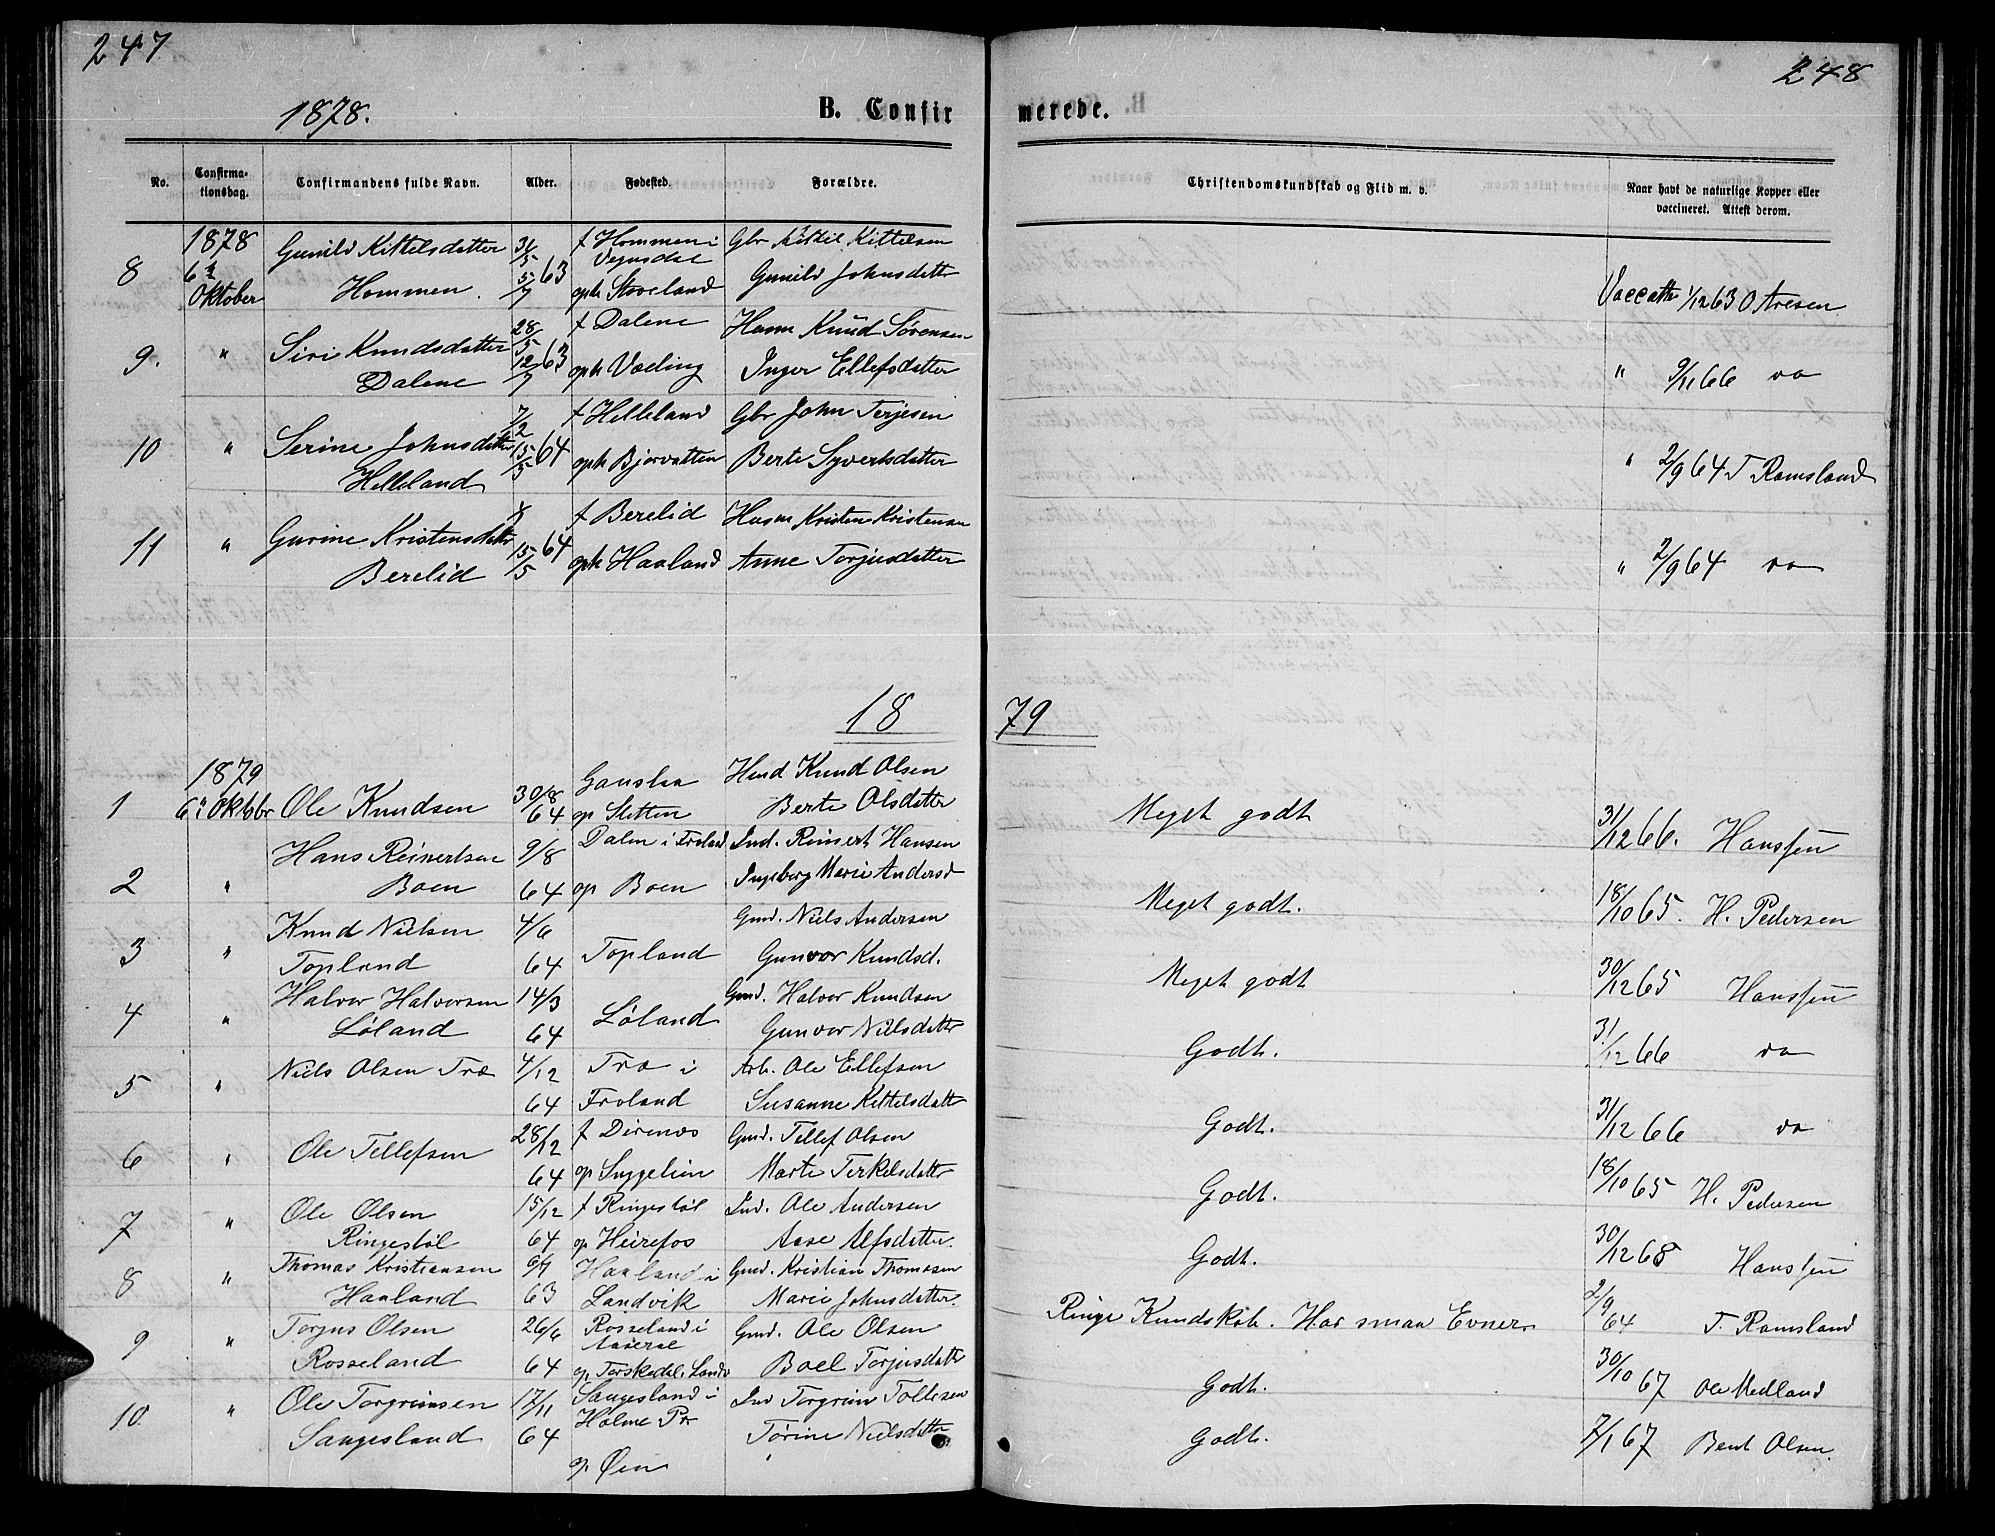 247
248
1878.
B. Confirmerede.
No. Confirmationsdag. Confirmandens fulde Navn. Alder. Fødested. Forældre. Christendomskundskab og Flid m. v. Naar havt de naturlige Kopper eller vaccineret. Attest derom.
1878 Gunild Kittelsdatter 31/5 f Hommen i Vegusdal Gbr Kittil Kittelsen
8 6te Oktober Hommen. 5/7 63 oph Stoveland Gunild Johnsdatter Vaccatt. 1/12 63 O Aresen
f Dalene Husm Knud Sørensen
9. " Siri Knudsdatter 28/5 63
Dalene 12/7 oph Væting Inger Ellefsdatter " 9/11 66 do
f Helleland Gbr John Terjesen
10 " Serine Johnsdatter 7/2 64
Helleland 15/5 oph Bjorvatten Berte Syvertsdatter " 2/9 64 T. Ramsland
f Berelid Husm Kristen Kristensen
11 " Gurine Kristensdatter 64
Berelid 15/5 oph Haaland Anne Torjusdatter " 2/9 64 do
1879
1879 Gauslaa Husd Knud Olsen
1 6te Oktobr Ole Knudsen 30/8 64 op Sletten Berte Olsdatter Meget godt 31/12 66. Hanssen
Hans Reinertsen 9/8 Dalen i Froland Ind. Reinert Hansen
2 " Boen 64 op Boen Ingeborg Marie Andersd Meget godt. 18/10 65. H. Pedersen
Knud Nielsen 4/6 Gmd. Niels Andersen
3 " Topland 64 Topland Gunvor Knudsd. Meget godt 30/12 65 Hanssen
Halvor Halvorsen 14/3 Gmd. Halvor Knudsen
4 " Løland 64 Løland Gunvor Nielsdatter Godt. 31/12 66 do
Niels Olsen Træ 4/12 Træ i Arb. Ole Ellefsen
5 " 64 Froland Susanne Kittelsdatt Godt. 31/12 66 do
28/12 f Direnæs Gmd. Tellef Olsen
6 " Ole Tellefsen 64 op Suggelien Marte Terkelsdatt Godt. 18/10 65 H. Pedersen
Ole Olsen 15/12 f Ringestøl Ind. Ole Andersen
7 " Ringestøl 64 op Heirefos Aase Alfsdatter. Godt. 30/12 68 Hanssen
Thomas Kristiansen Haaland i Gmd. Kristian Thomesen
8 " Haaland 63 Landvik Marie Johnsdatter. Ringe Kundskab. Har smaa Evner. 2/9 64 T. Ramsland
Torjus Olsen 26/6 Rosseland i Gmd. Ole Olsen
9 " Rosseland 64 op Torskedal i Landv Boel Torjusdatt Godt. 30/10 67 Ole Medland
Ole Torgrimsen 17/11 Saugesland i Ind Torgrim Tollesen
10 " Saugesland 64 Holme Pr Tørine Nielsdatter Godt. 7/1 67 Bent Olsen.
op Øin